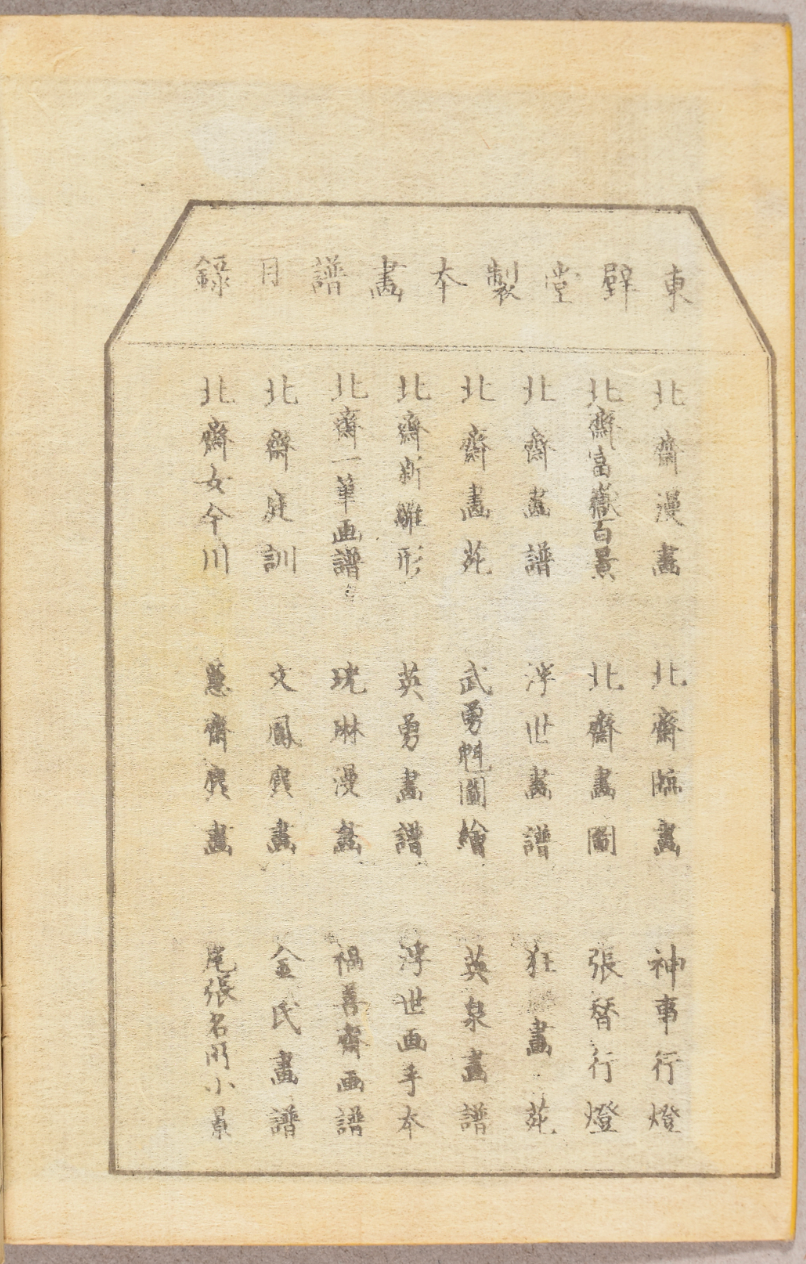 東壁堂製本畫譜目録
北齋漫畫
北齋富嶽百景
北齋畫譜
北齋畫苑
北齋新雛形
北齋一筆画譜
北齋庭訓
北齋女今川
北齋臨畫
北齋畫圖
浮世畫譜
武勇魁圖繪
英勇畫譜
光琳漫畫
文鳳麁畫
蕙齋麁畫
神事行燈
張替行燈
狂畫苑
英泉畫譜
浮世画手本
福善齋画譜
金氏畫譜
尾張名所小景